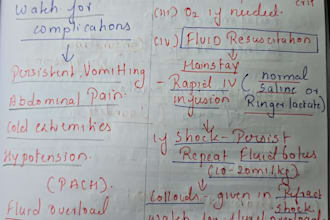 Watch for
complications
Persistent Vomitting
Abdominal Pain
Cold extremities
Hypotension
(PACH)
Fluid overload
(iii) O2 if needed.
(iv) FLUID RESUSCITATION
Mainstay
- Rapid IV (normal
infusion saline or
Ringer lactate)
if shock Persist
Repeat Fluid bolus
(10-20ml/kg)
Colloids - given in Refract
shock
watch for fluid overload